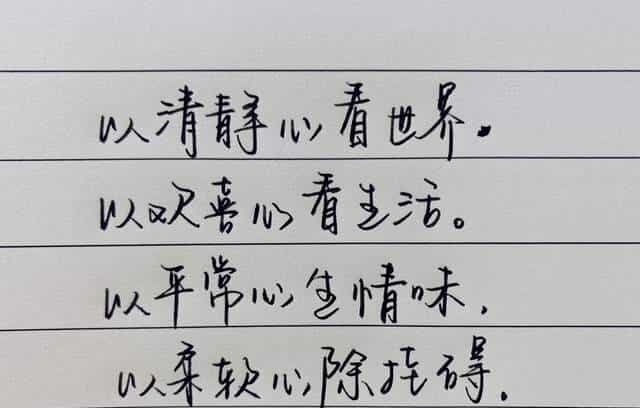 以清静心看世界。
以欢喜心看生活。
以平常心生情味，
以柔软心除挂碍。